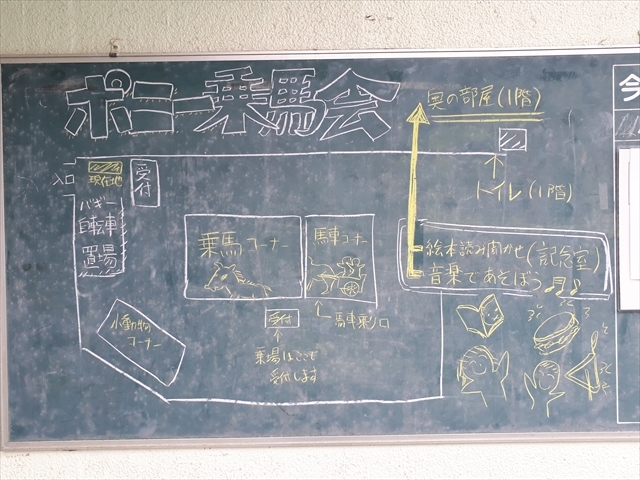 ポニー乗馬会
奥の部屋(1階)
トイレ(1階)
入口
現在地
受付
バギー
自転車
置場
乗馬コーナー
馬車コーナー
絵本読み聞かせ(記念室)
音楽であそぼう♫♪
受付
馬車乗り口
小動物
コーナー
受付します
今